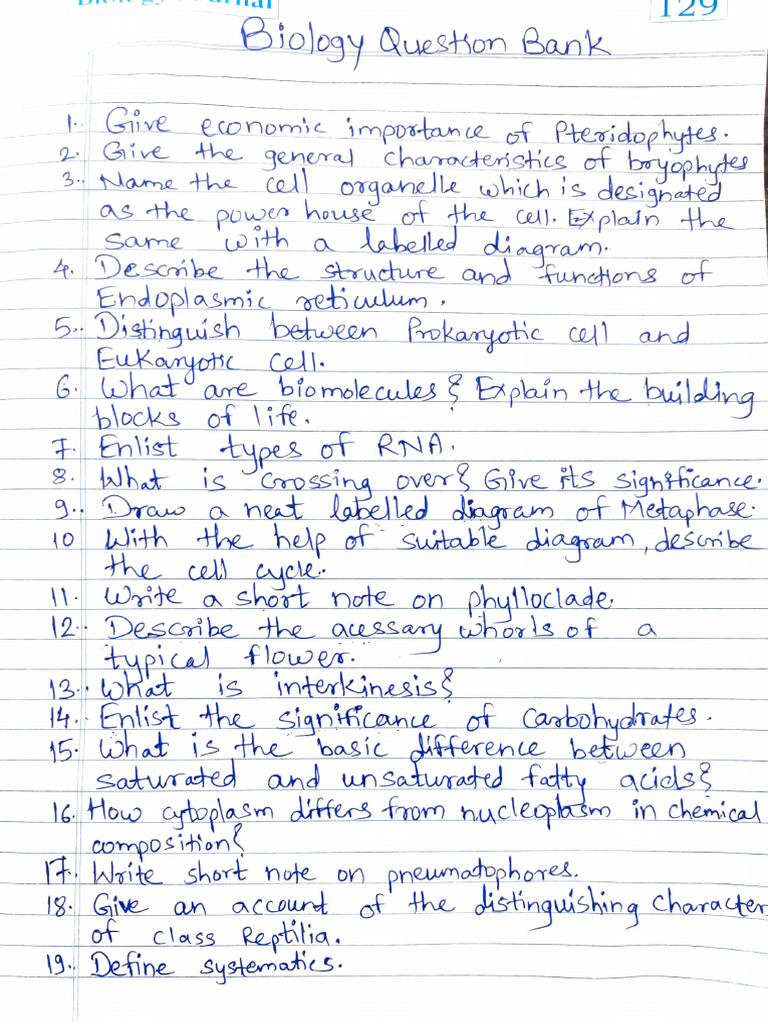 Biology Journal
129
Biology Question Bank
1. Give economic importance of Pteridophytes.
2. Give the general characteristics of bryophytes
3. Name the cell organelle which is designated
as the power house of the cell. Explain the
same with a labelled diagram.
4. Describe the structure and functions of
Endoplasmic reticulum.
5. Distinguish between Prokaryotic cell and
Eukaryotic cell.
6. What are biomolecules? Explain the building
blocks of life.
7. Enlist types of RNA.
8. What is crossing over? Give its significance.
9. Draw a neat labelled diagram of Metaphase.
10 With the help of suitable diagram, describe
the cell cycle.
11. Write a short note on phylloclade.
12. Describe the acessary whorls of a
typical flower.
13. What is interkinesis?
14. Enlist the significance of Carbohydrates.
15. What is the basic difference between
saturated and unsaturated fatty acids?
16. How cytoplasm differs from nucleoplasm in chemical
composition?
17. Write short note on pneumatophores.
18. Give an account of the distinguishing character
of class Reptilia.
19. Define systematics.